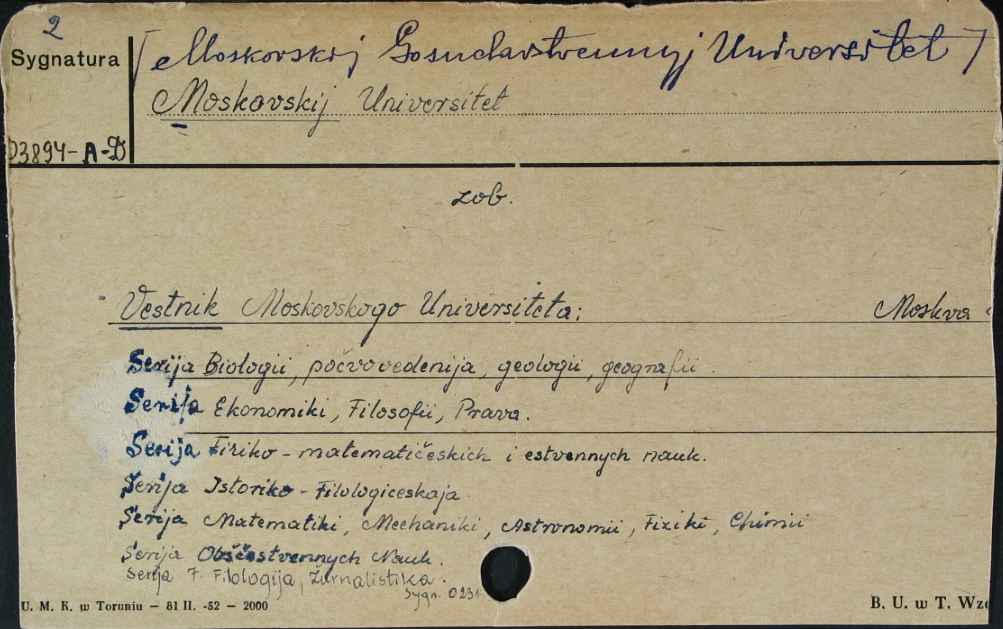 2
Sygnatura
[Moskovskij Gosudarstvennyj Universitet]
Moskovskij Universitet
D3894-A-D
zob.
Vestnik Moskovskogo Universiteta; Moskva
Serija Biologii, počvovedenija, geologii, geografii.
Serija Ekonomiki, Filosofii, Prava.
Serija Fiziko-matematičeskich i estvennych nauk.
Serija Istoriko-Filologiceskaja
Serija Matematiki, Mechaniki, Astronomii, Fiziki, Chimii
Serija Obščestvennych Nauk.
Serija 7. Filologija, Žurnalistika.
Sygn. 0231
U. M. K. w Toruniu — 81 II. -52 — 2000
B. U. w T. Wzó